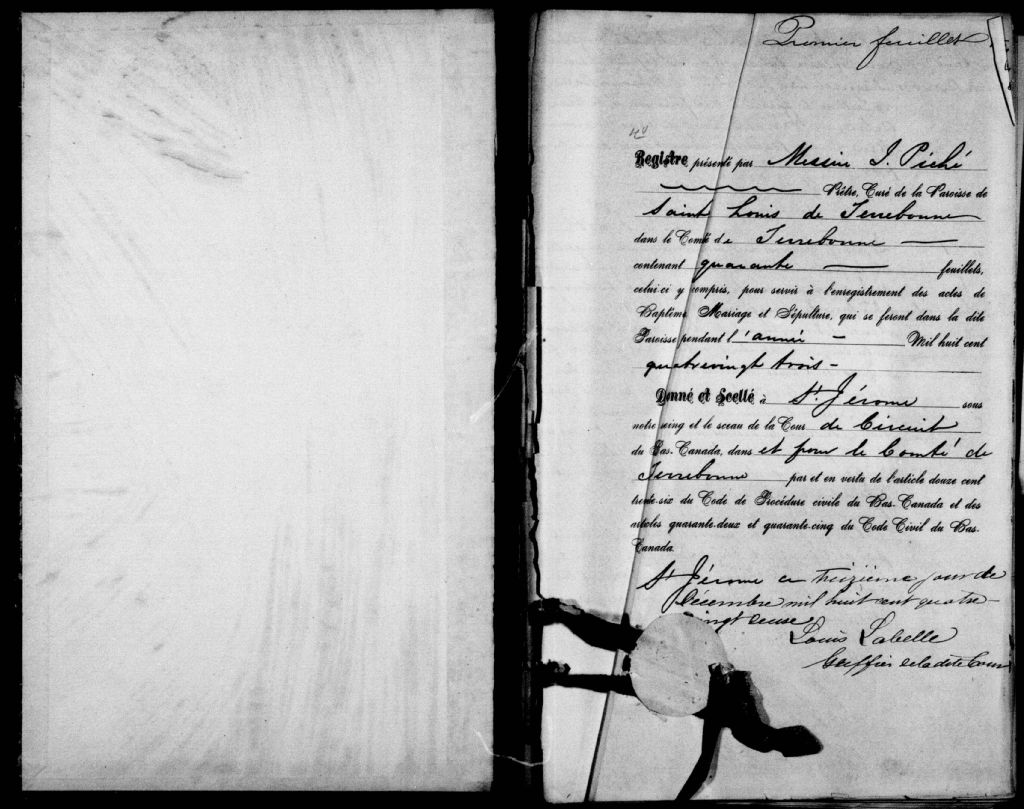 Premier feuillet
Registre présenté par Messire J. Piché
Prêtre, Curé de la Paroisse de
Saint Louis de Terrebonne
dans le Comté de Terrebonne
contenant quarante feuillets,
celui-ci y compris, pour servir à l'enregistrement des actes de
Baptême Mariage et Sépulture, qui se feront dans la dite
Paroisse pendant l'année Mil huit cent
quatrevingt trois -
Donné et Scellé à St. Jérome sous
notre seing et le sceau de la Cour de Circuit
du Bas-Canada, dans et pour le Comté de
Terrebonne par et en vertu de l'article douze cent
trente-six du Code de Procédure civile du Bas-Canada et des
articles quarante-deux et quarante-cinq du Code Civil du Bas-
Canada.
St Jérome ce treizième jour de
Décembre mil huit cent quatre-
vingt deux
Louis Labelle
Greffier de la dite Cour